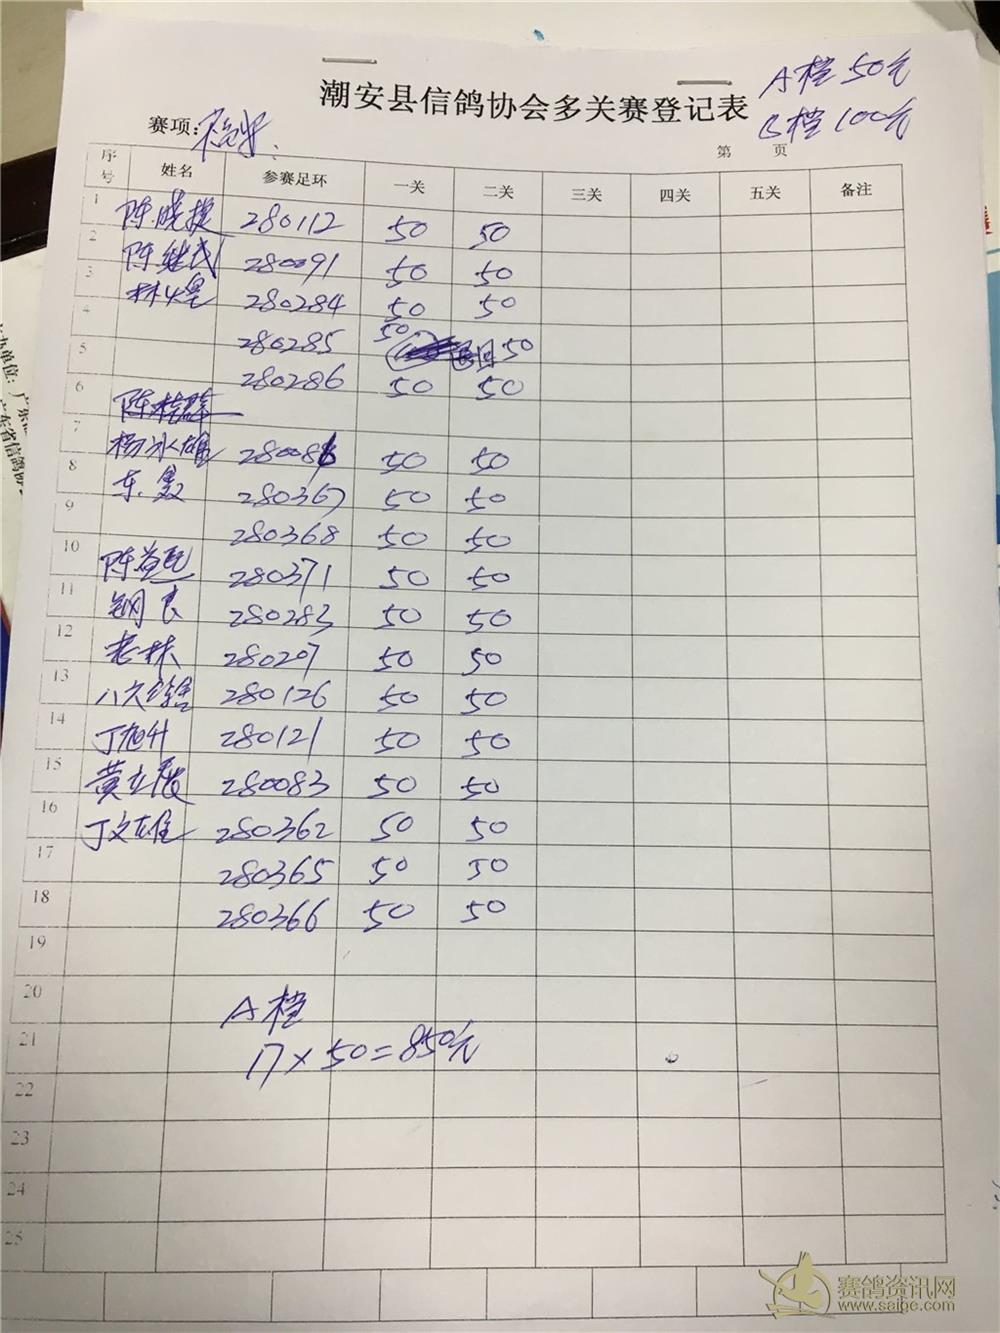 A档 50元
潮安县信鸽协会多关赛登记表
B档 100元
赛项:
第 页
序号 姓名 参赛足环 一关 二关 三关 四关 五关 备注
1 陈晓捷 280112 50 50
2 陈继民 280091 50 50
3 林少星 280284 50 50
4 280285 50 50
5 280286 50 50
6 陈桂群
7 杨冰雄 28008 50 50
8 东 280367 50 50
9 280368 50 50
10 陈益 280371 50 50
11 钢良 280283 50 50
12 老林 280207 50 50
13 八六 280126 50 50
14 丁旭升 280121 50 50
15 黄立 280083 50 50
16 丁文雄 280362 50 50
17 280365 50 50
18 280366 50 50
19
20 A档
21 17×50=850元
22
23
24
25
办单位：广东
广东省信鸽协
赛鸽资讯网
www.saige.com